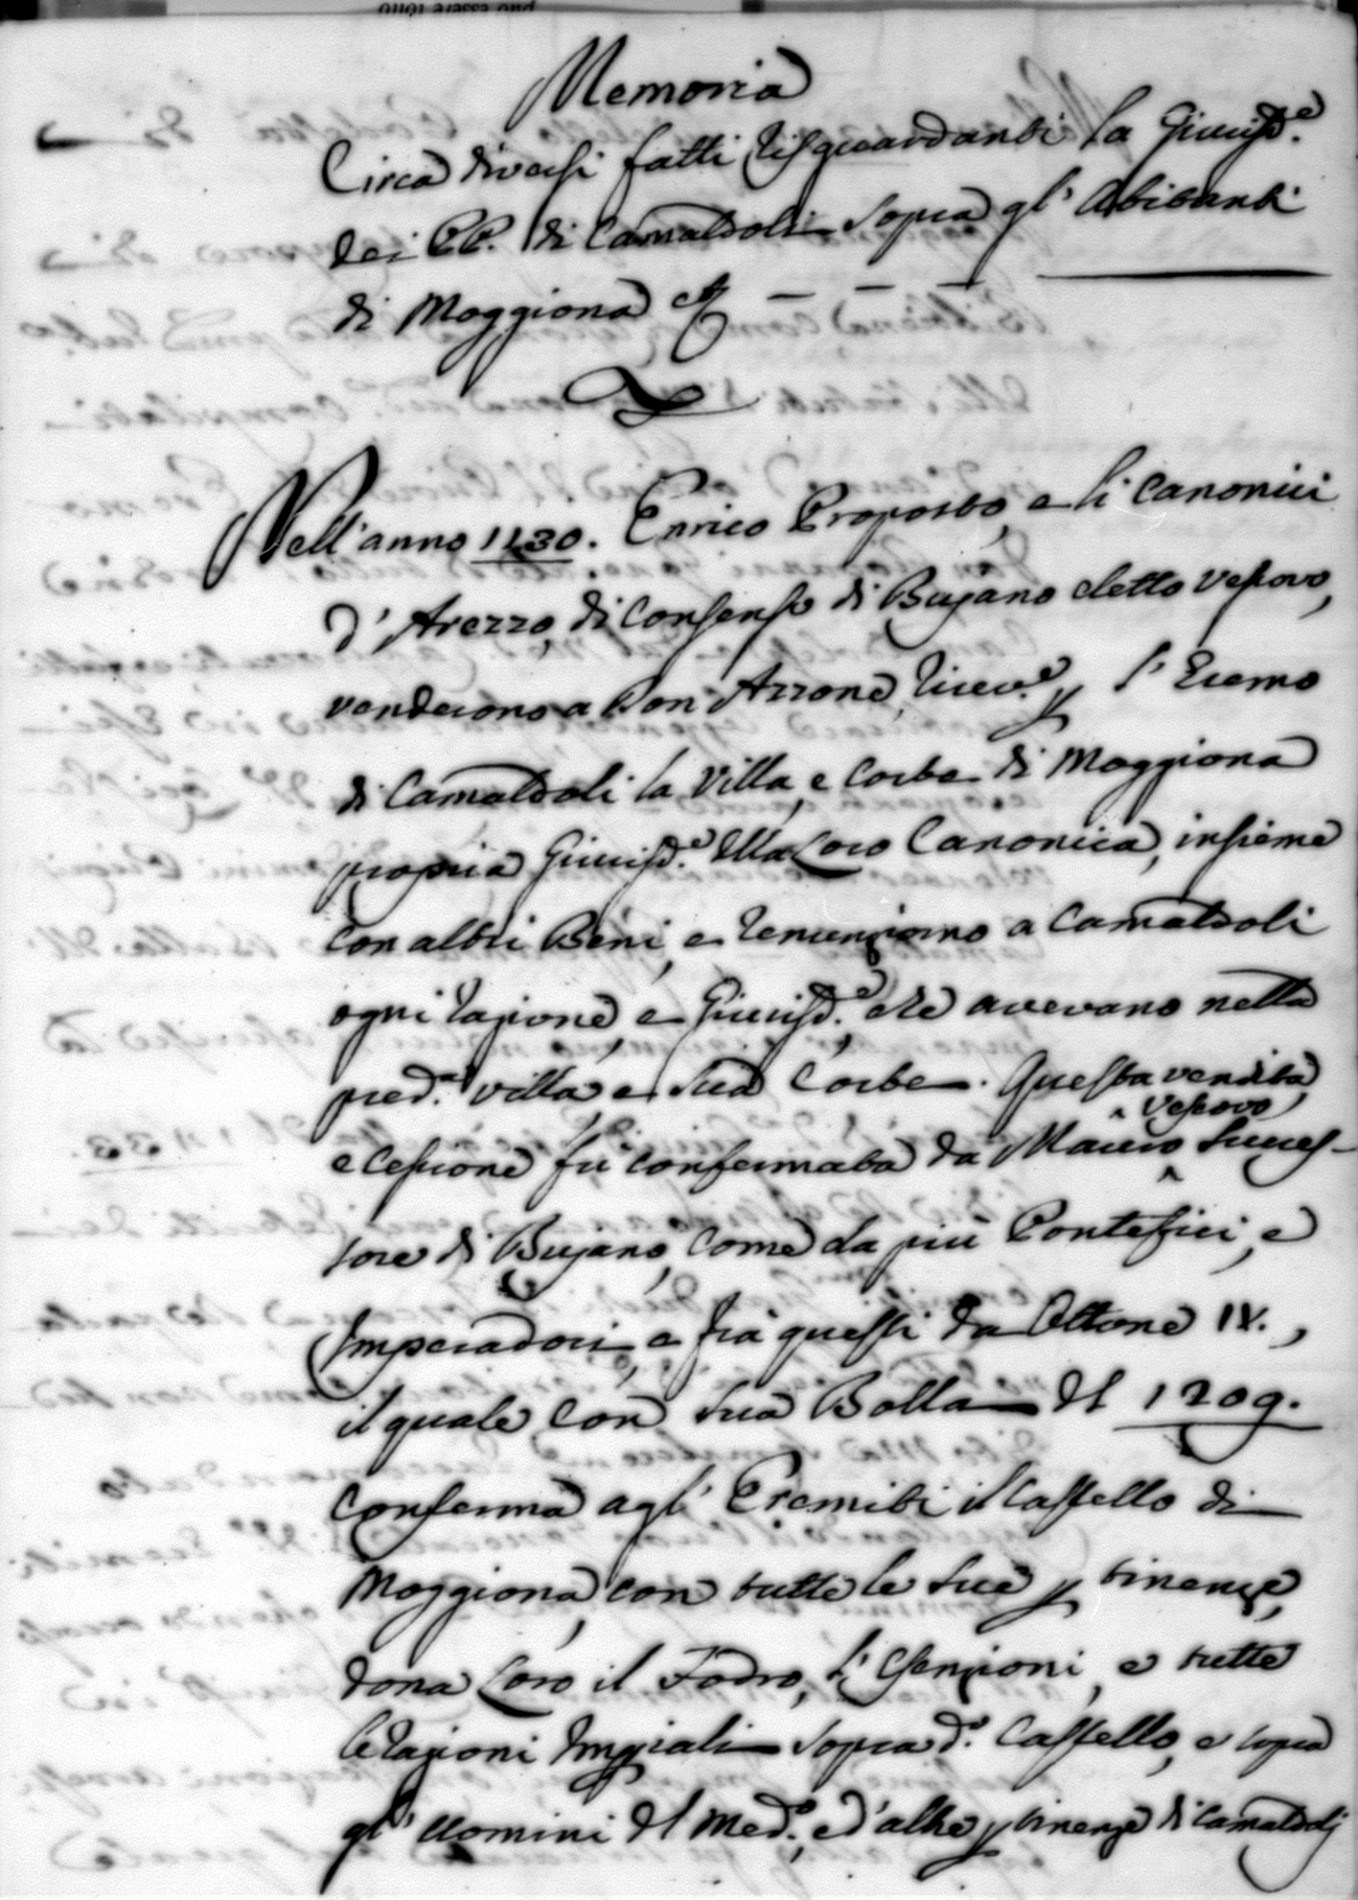 Memoria
Circa diversi fatti risguardanti la Giurisd.e
dei PP. di Camaldoli sopra gl' Abitanti
di Moggiona &
Nell'anno 1130. Enrico Proposto, e li Canonici
d'Arezzo, di consenso di Bujano eletto Vescovo,
venderono a Don Azzone, ricev.e p l'Eremo
di Camaldoli la Villa, e Corte di Moggiona
propria Giurisd.e della Loro Canonica, insieme
con altri Beni, e renunziorno a Camaldoli
ogni ragione, e Giurisd.e, che avevano nella
pred.a villa, e sua Corte. Questa vendita,
Vescovo
e cessione fù confermata da Mauro Succes-
sore di Bujano, come da più Pontefici, e
Imperadori, e frà questi da Ottone IV.,
il quale con sua Bolla del 1209.
conferma agl' Eremiti il Castello di
Moggiona, con tutte le sue ptinenze,
dona Loro il Fodro, l'Esenzioni, e tutte
le ragioni Impiali sopra d.o Castello, e sopra
gl' Uomini del Med.o, ed'altre ptinenze di Camaldoli